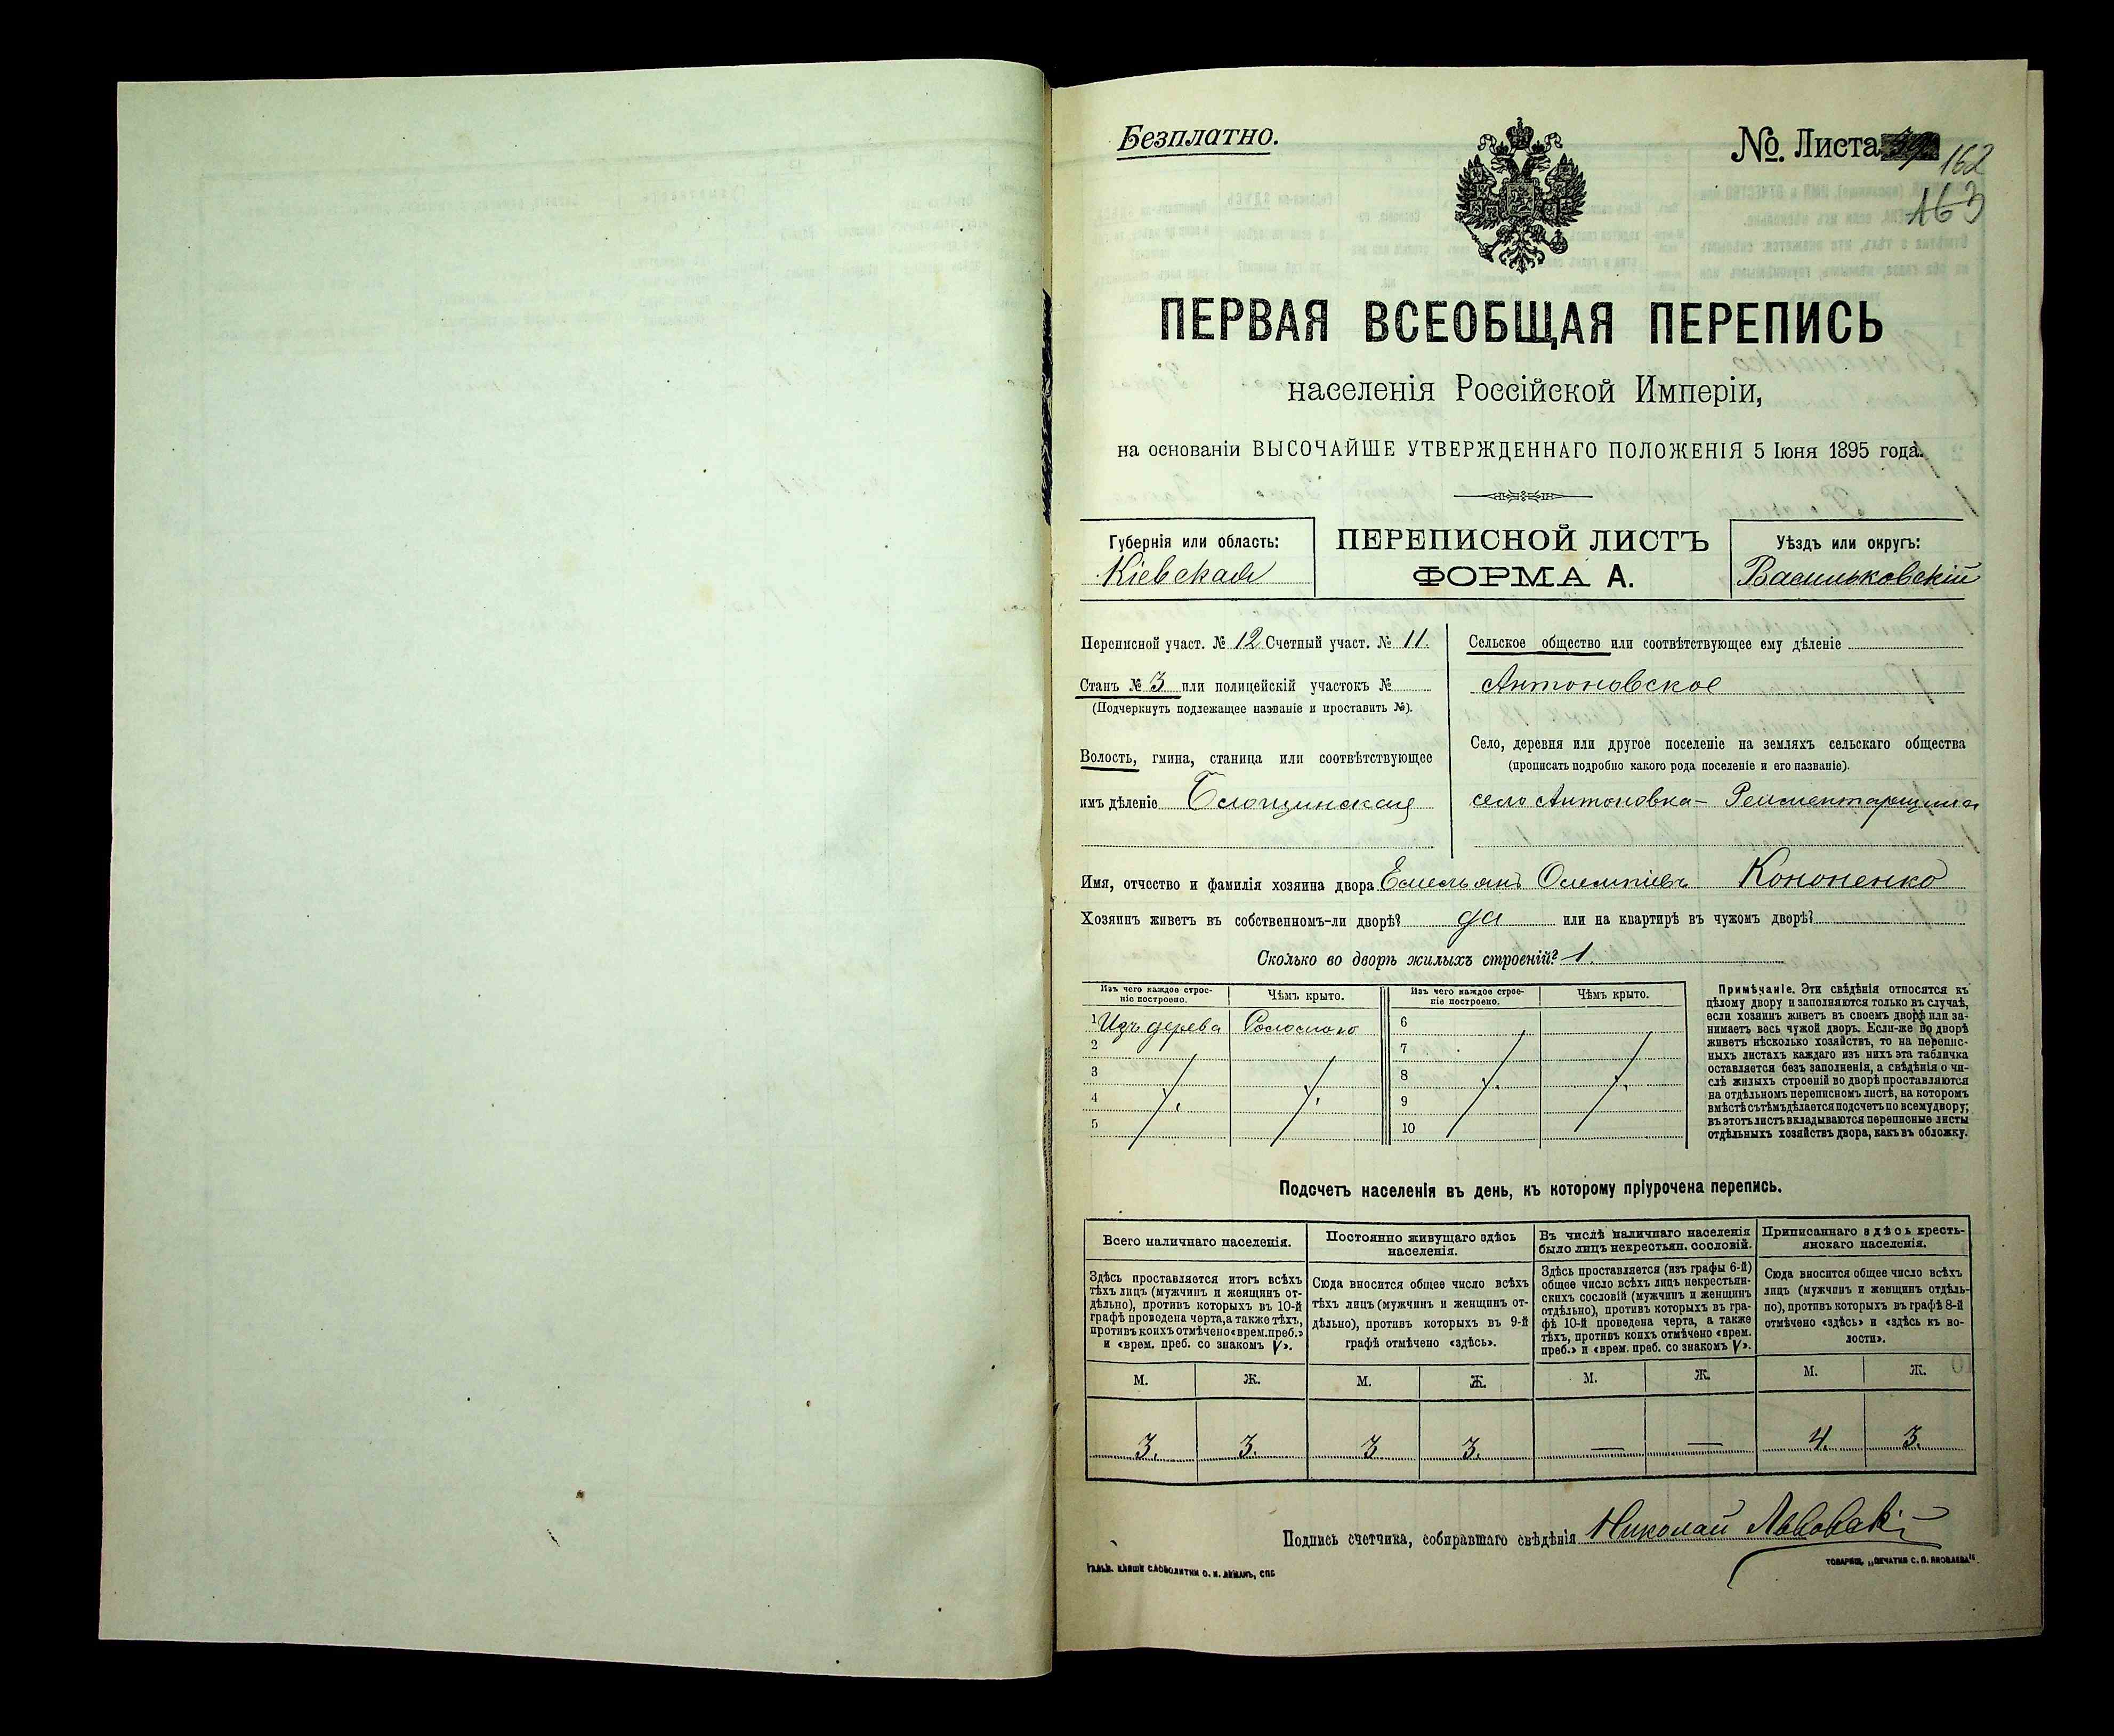 Безплатно.
№ Листа
162
163
ПЕРВАЯ ВСЕОБЩАЯ ПЕРЕПИСЬ
населенія Россійской Имперіи,
на основаніи ВЫСОЧАЙШЕ УТВЕРЖДЕННАГО ПОЛОЖЕНІЯ 5 Іюня 1895 года.
Губернія или область:
Кіевская
ПЕРЕПИСНОЙ ЛИСТЪ
ФОРМА А.
Уѣздъ или округъ:
Васильковскій
Переписной участ. № 12 Счетный участ. № 11.
Станъ № 3 или полицейскій участокъ №
(Подчеркнуть подлежащее названіе и проставить №).
Волость, гмина, станица или соотвѣтствующее
имъ дѣленіе
Сельское общество или соотвѣтствующее ему дѣленіе
Антоновское
Село, деревня или другое поселеніе на земляхъ сельскаго общества
(прописать подробно какого рода поселеніе и его названіе).
село Антоновка –
Имя, отчество и фамилія хозяина двора Емельянъ Кононенко
Хозяинъ живетъ въ собственномъ-ли дворѣ? да или на квартирѣ въ чужомъ дворѣ?
Сколько во дворѣ жилыхъ строеній? 1.
Изъ чего каждое строе-
ніе построено.
Чѣмъ крыто.
Изъ чего каждое строе-
ніе построено.
Чѣмъ крыто.
1 Изъ дерева 6
2 7
3 8
4 9
5 10
Примѣчаніе. Эти свѣдѣнія относятся къ
цѣлому двору и заполняются только въ случаѣ,
если хозяинъ живетъ въ своемъ дворѣ или за-
нимаетъ весь чужой дворъ. Если-же во дворѣ
живетъ нѣсколько хозяйствъ, то на перепис-
ныхъ листахъ каждаго изъ нихъ эта табличка
оставляется безъ заполненія, а свѣдѣнія о чи-
слѣ жилыхъ строеній во дворѣ проставляются
на отдѣльномъ переписномъ листѣ, на которомъ
вмѣстѣ съ тѣмъ дѣлается подсчетъ по всему двору;
въ этотъ листъ вкладываются переписные листы
отдѣльныхъ хозяйствъ двора, какъ въ обложку.
Подсчетъ населенія въ день, къ которому пріурочена перепись.
Всего наличнаго населенія.
Постоянно живущаго здѣсь
населенія.
Въ числѣ наличнаго населенія
было лицъ некрестьян. сословій.
Приписаннаго здѣсь кресть-
янскаго населенія.
Здѣсь проставляется итогъ всѣхъ
тѣхъ лицъ (мужчинъ и женщинъ от-
дѣльно), противъ которыхъ въ 10-й
графѣ проведена черта, а также тѣхъ,
противъ коихъ отмѣчено «врем. преб.»
и «врем. преб. со знакомъ V».
Сюда вносится общее число всѣхъ
тѣхъ лицъ (мужчинъ и женщинъ от-
дѣльно), противъ которыхъ въ 9-й
графѣ отмѣчено «здѣсь».
Здѣсь проставляется (изъ графы 6-й)
общее число всѣхъ лицъ некрестьян-
скихъ сословій (мужчинъ и женщинъ
отдѣльно), противъ которыхъ въ гра-
фѣ 10-й проведена черта, а также
тѣхъ, противъ коихъ отмѣчено «врем.
преб.» и «врем. преб. со знакомъ V».
Сюда вносится общее число всѣхъ
лицъ (мужчинъ и женщинъ отдѣль-
но), противъ которыхъ въ графѣ 8-й
отмѣчено «здѣсь» и «здѣсь къ во-
лости».
М. Ж. М. Ж. М. Ж. М. Ж.
3. 3. 3 3. — — 4. 3.
Подпись счетчика, собиравшаго свѣдѣнія Николай Львовскій
ГАЛЬВ. КЛИШЕ СЛОВОЛИТНИ О. И. ЛЕМАНЪ, СПБ
ТОВАРИЩ. „ПЕЧАТНЯ С. П. ЯКОВЛЕВА"